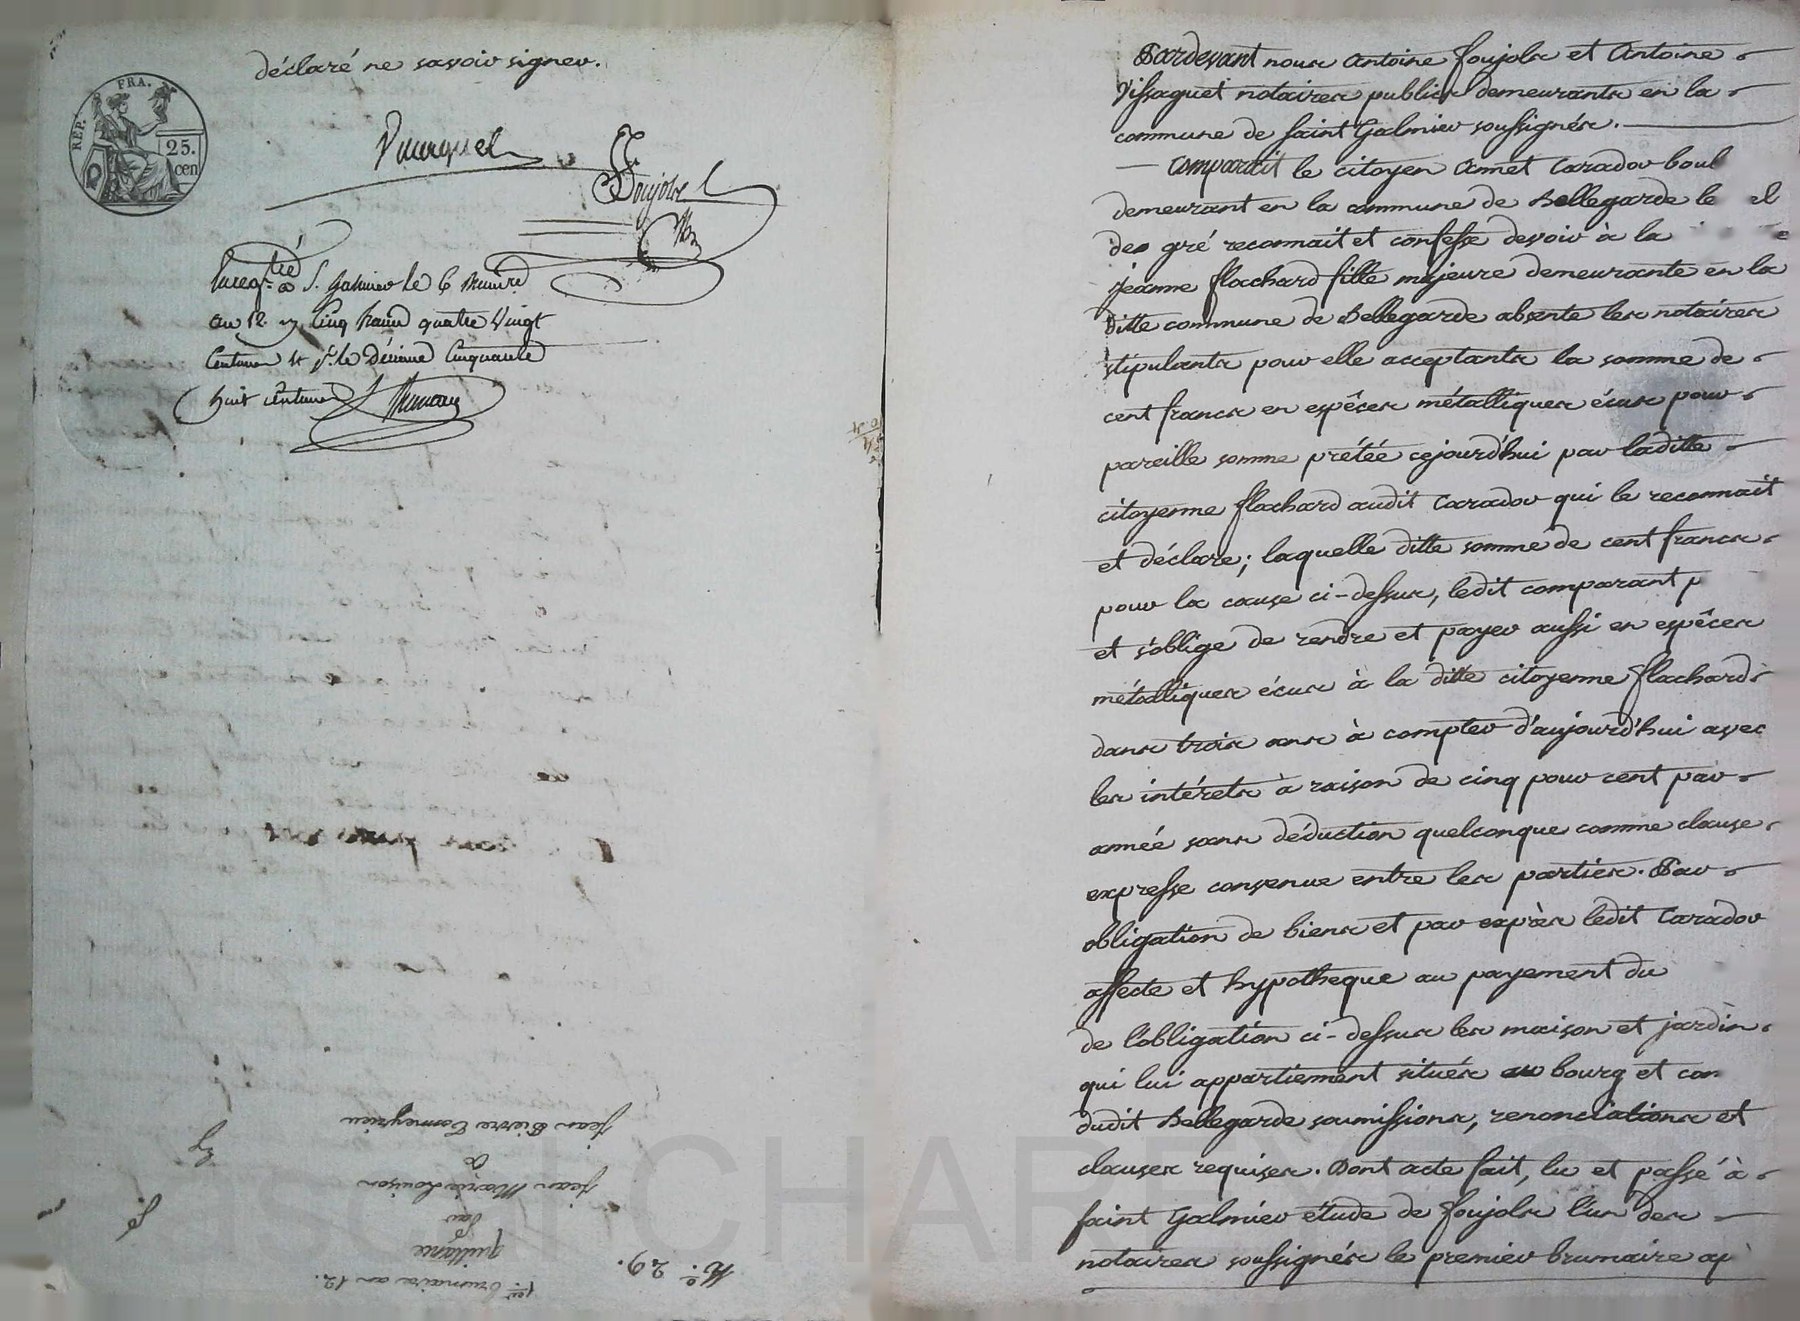 déclaré ne savoir signer.
REP. FRA.
25.
cen
Foujols
Enregtré à St Galmier le 6 Brumre
an 12 Cinq francs quatre Vingt
Centimes et pr. le Décime Cinquante
huit centimes
Jean Pierre
&
Jean Marie Louison
par
quittance
1er. brumaire an 12.
No. 29.
Pardevant nous Antoine foujols et Antoine
Vissaguet notaires publics demeurants en la
commune de saint Galmier soussignés.
Comparait le citoyen Amet Carador boul
demeurant en la commune de Bellegarde le el
de gré reconnait et confesse devoir à la e
jéanne flachard fille majeure demeurante en la
ditte commune de Bellegarde absente les notaires
stipulants pour elle acceptants la somme de
cent francs en espêces métalliques écus pour
pareille somme prétée cejourd'hui par laditte
citoyenne flachard audit Carador qui le reconnait
et déclare; laquelle ditte somme de cent francs
pour la cause ci-dessus, ledit comparant p
et s'oblige de rendre et payer aussi en espêces
métalliques écus à la ditte citoyenne flachard
dans trois ans à compter d'aujourd'hui avec
les intérets à raison de cinq pour cent par
année sans déduction quelconque comme clause
expresse convenue entre les parties. Par
obligation de biens et par exprès ledit Carador
affecte et hypotheque au payement du
de l'obligation ci-dessus les maison et jardin
qui lui appartiennent situés au bourg et com
dudit Bellegarde soumissions, renonciations et
clauses requises. Dont acte fait, lu et passé à
saint Galmier étude de foujols l'un des
notaires soussignés le premier brumaire ap